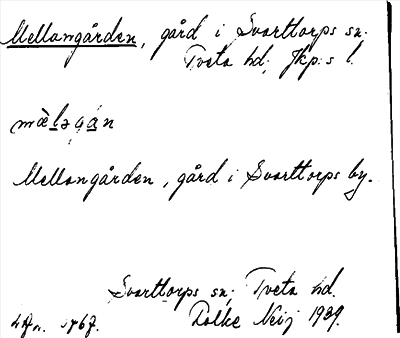 Mellangården, gård i Svarttorps sn.
Tveta hd; Jkp:s l.
mæ̀lǝgán
Mellangården, gård i Svarttorps by.
Svarttorps sn; Tveta hd.
Folke Neij 1939.